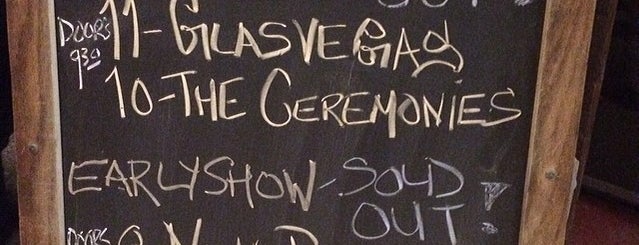 OUT!
DOORS 11-GLASVEGAS
9:30 10-THE CEREMONIES
EARLY SHOW - SOLD
OUT!
DOORS